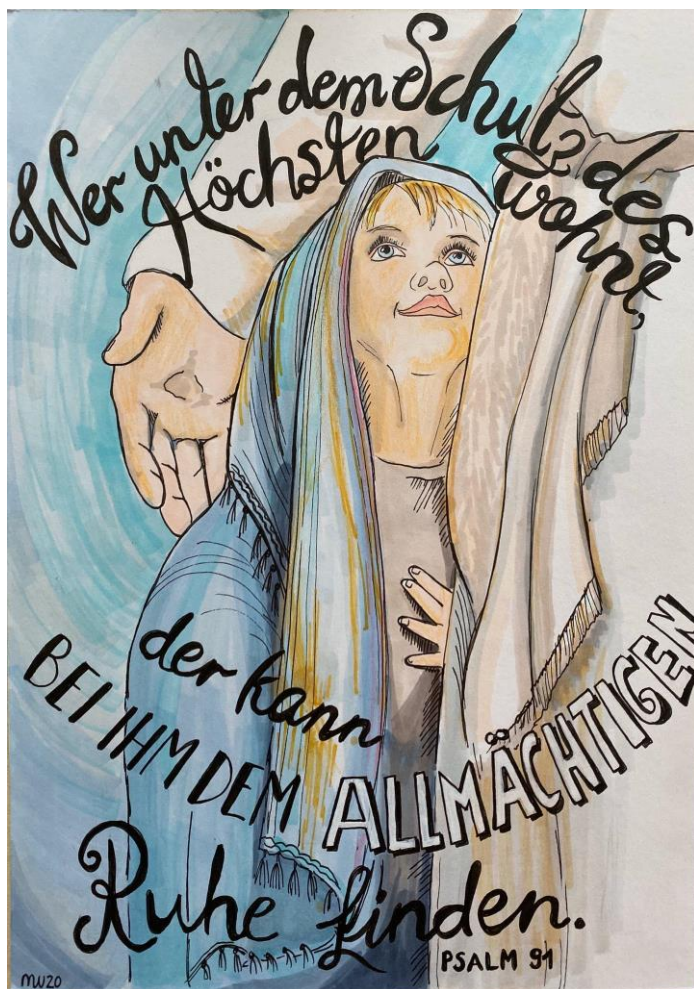 Wer unter dem Schutz des
Höchsten wohnt,
der kann
BEI IHM DEM ALLMÄCHTIGEN
Ruhe finden.
PSALM 91
MW20